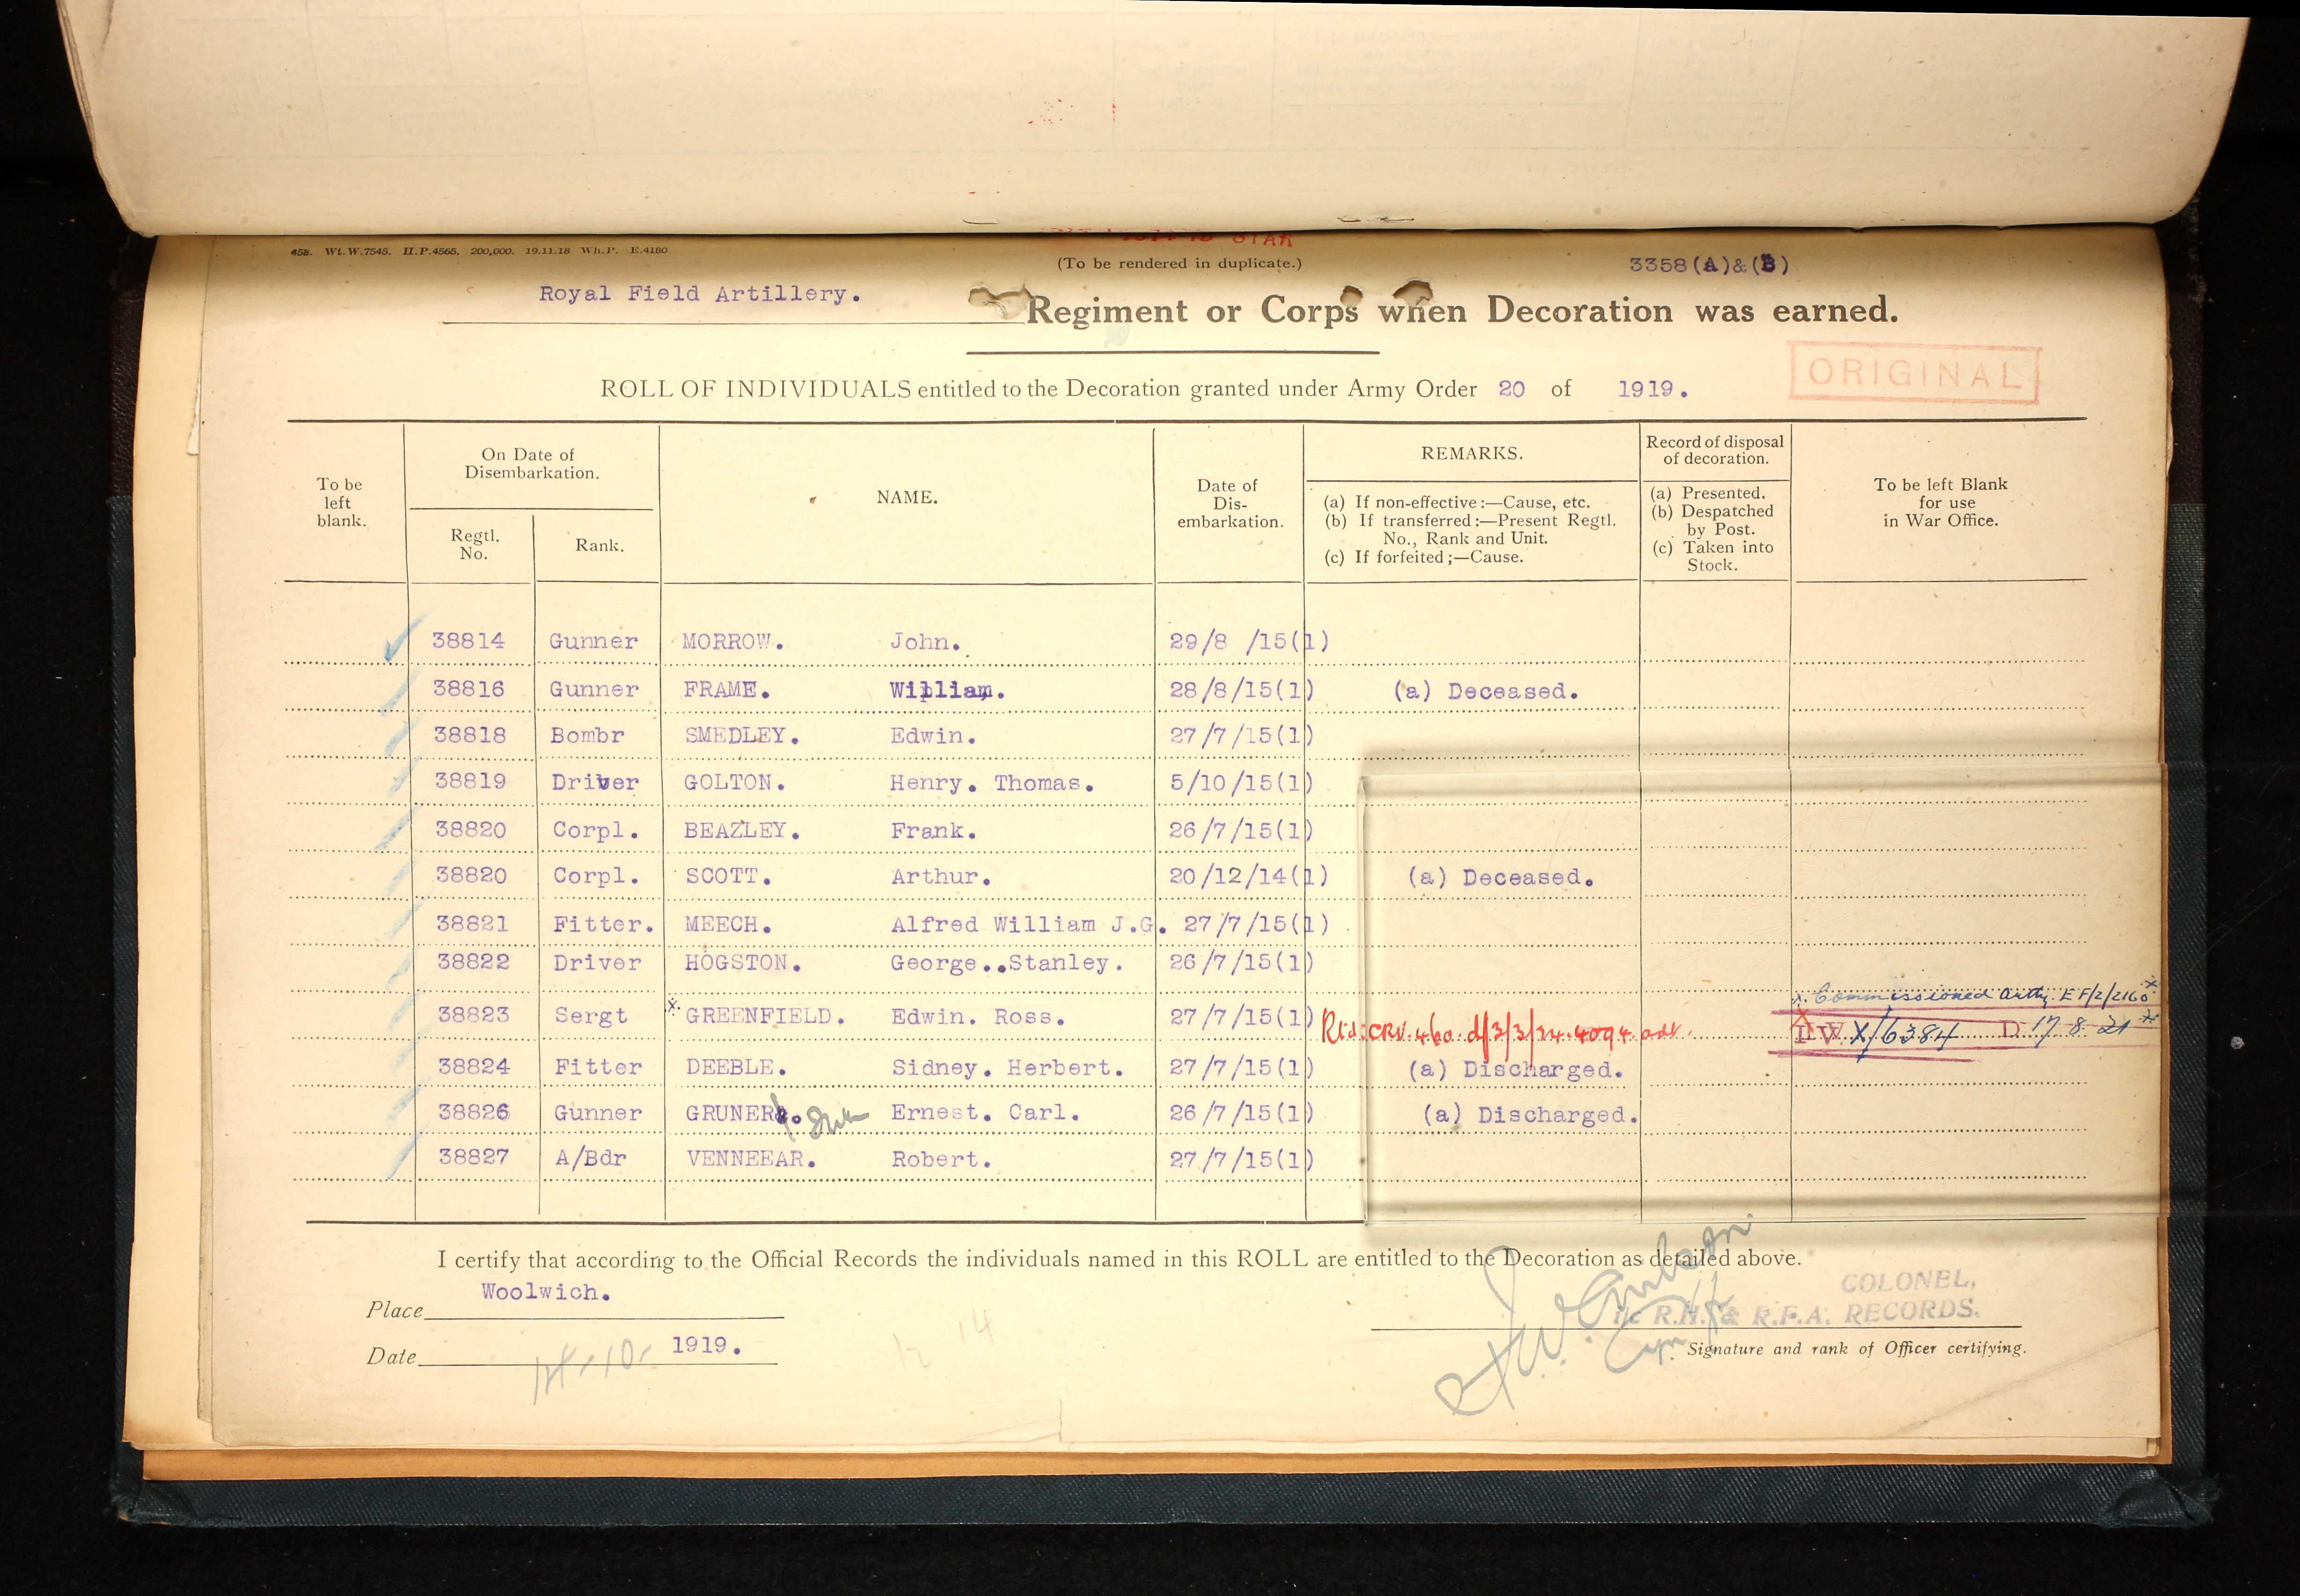 STAR
458. Wt. W.7545. H.P.4565. 200,000. 19.11.18 Wh.P. E.4180
(To be rendered in duplicate.)
3358(A)&(B)
Royal Field Artillery. Regiment or Corps when Decoration was earned.
ORIGINAL
ROLL OF INDIVIDUALS entitled to the Decoration granted under Army Order 20 of 1919.
To be left blank.
On Date of Disembarkation.
Regtl. No.
Rank.
NAME.
Date of Dis-embarkation.
REMARKS.
(a) If non-effective:—Cause, etc.
(b) If transferred:—Present Regtl. No., Rank and Unit.
(c) If forfeited;—Cause.
Record of disposal of decoration.
(a) Presented.
(b) Despatched by Post.
(c) Taken into Stock.
To be left Blank for use in War Office.
38814 Gunner MORROW. John. 29/8 /15(1)
38816 Gunner FRAME. William. 28/8/15(1) (a) Deceased.
38818 Bombr SMEDLEY. Edwin. 27/7/15(1)
38819 Driver GOLTON. Henry. Thomas. 5/10/15(1)
38820 Corpl. BEAZLEY. Frank. 26/7/15(1)
38820 Corpl. SCOTT. Arthur. 20/12/14(1) (a) Deceased.
38821 Fitter. MEECH. Alfred William J.G. 27/7/15(1)
38822 Driver HOGSTON. George..Stanley. 26/7/15(1)
x. Commissioned authy. EF/2/2160 x
38823 Sergt x GREENFIELD. Edwin. Ross. 27/7/15(1) Rtd. CRV. 460. d/3/3/24. 4094. adt. I W X/6384 D 17.8.21
38824 Fitter DEEBLE. Sidney. Herbert. 27/7/15(1) (a) Discharged.
38826 Gunner GRUNER. Ernest. Carl. 26/7/15(1) (a) Discharged.
38827 A/Bdr VENNEEAR. Robert. 27/7/15(1)
I certify that according to the Official Records the individuals named in this ROLL are entitled to the Decoration as detailed above.
Place Woolwich.
COLONEL,
i/c R.H. & R.F.A. RECORDS.
Date 14-10- 1919.
12 14
Signature and rank of Officer certifying.